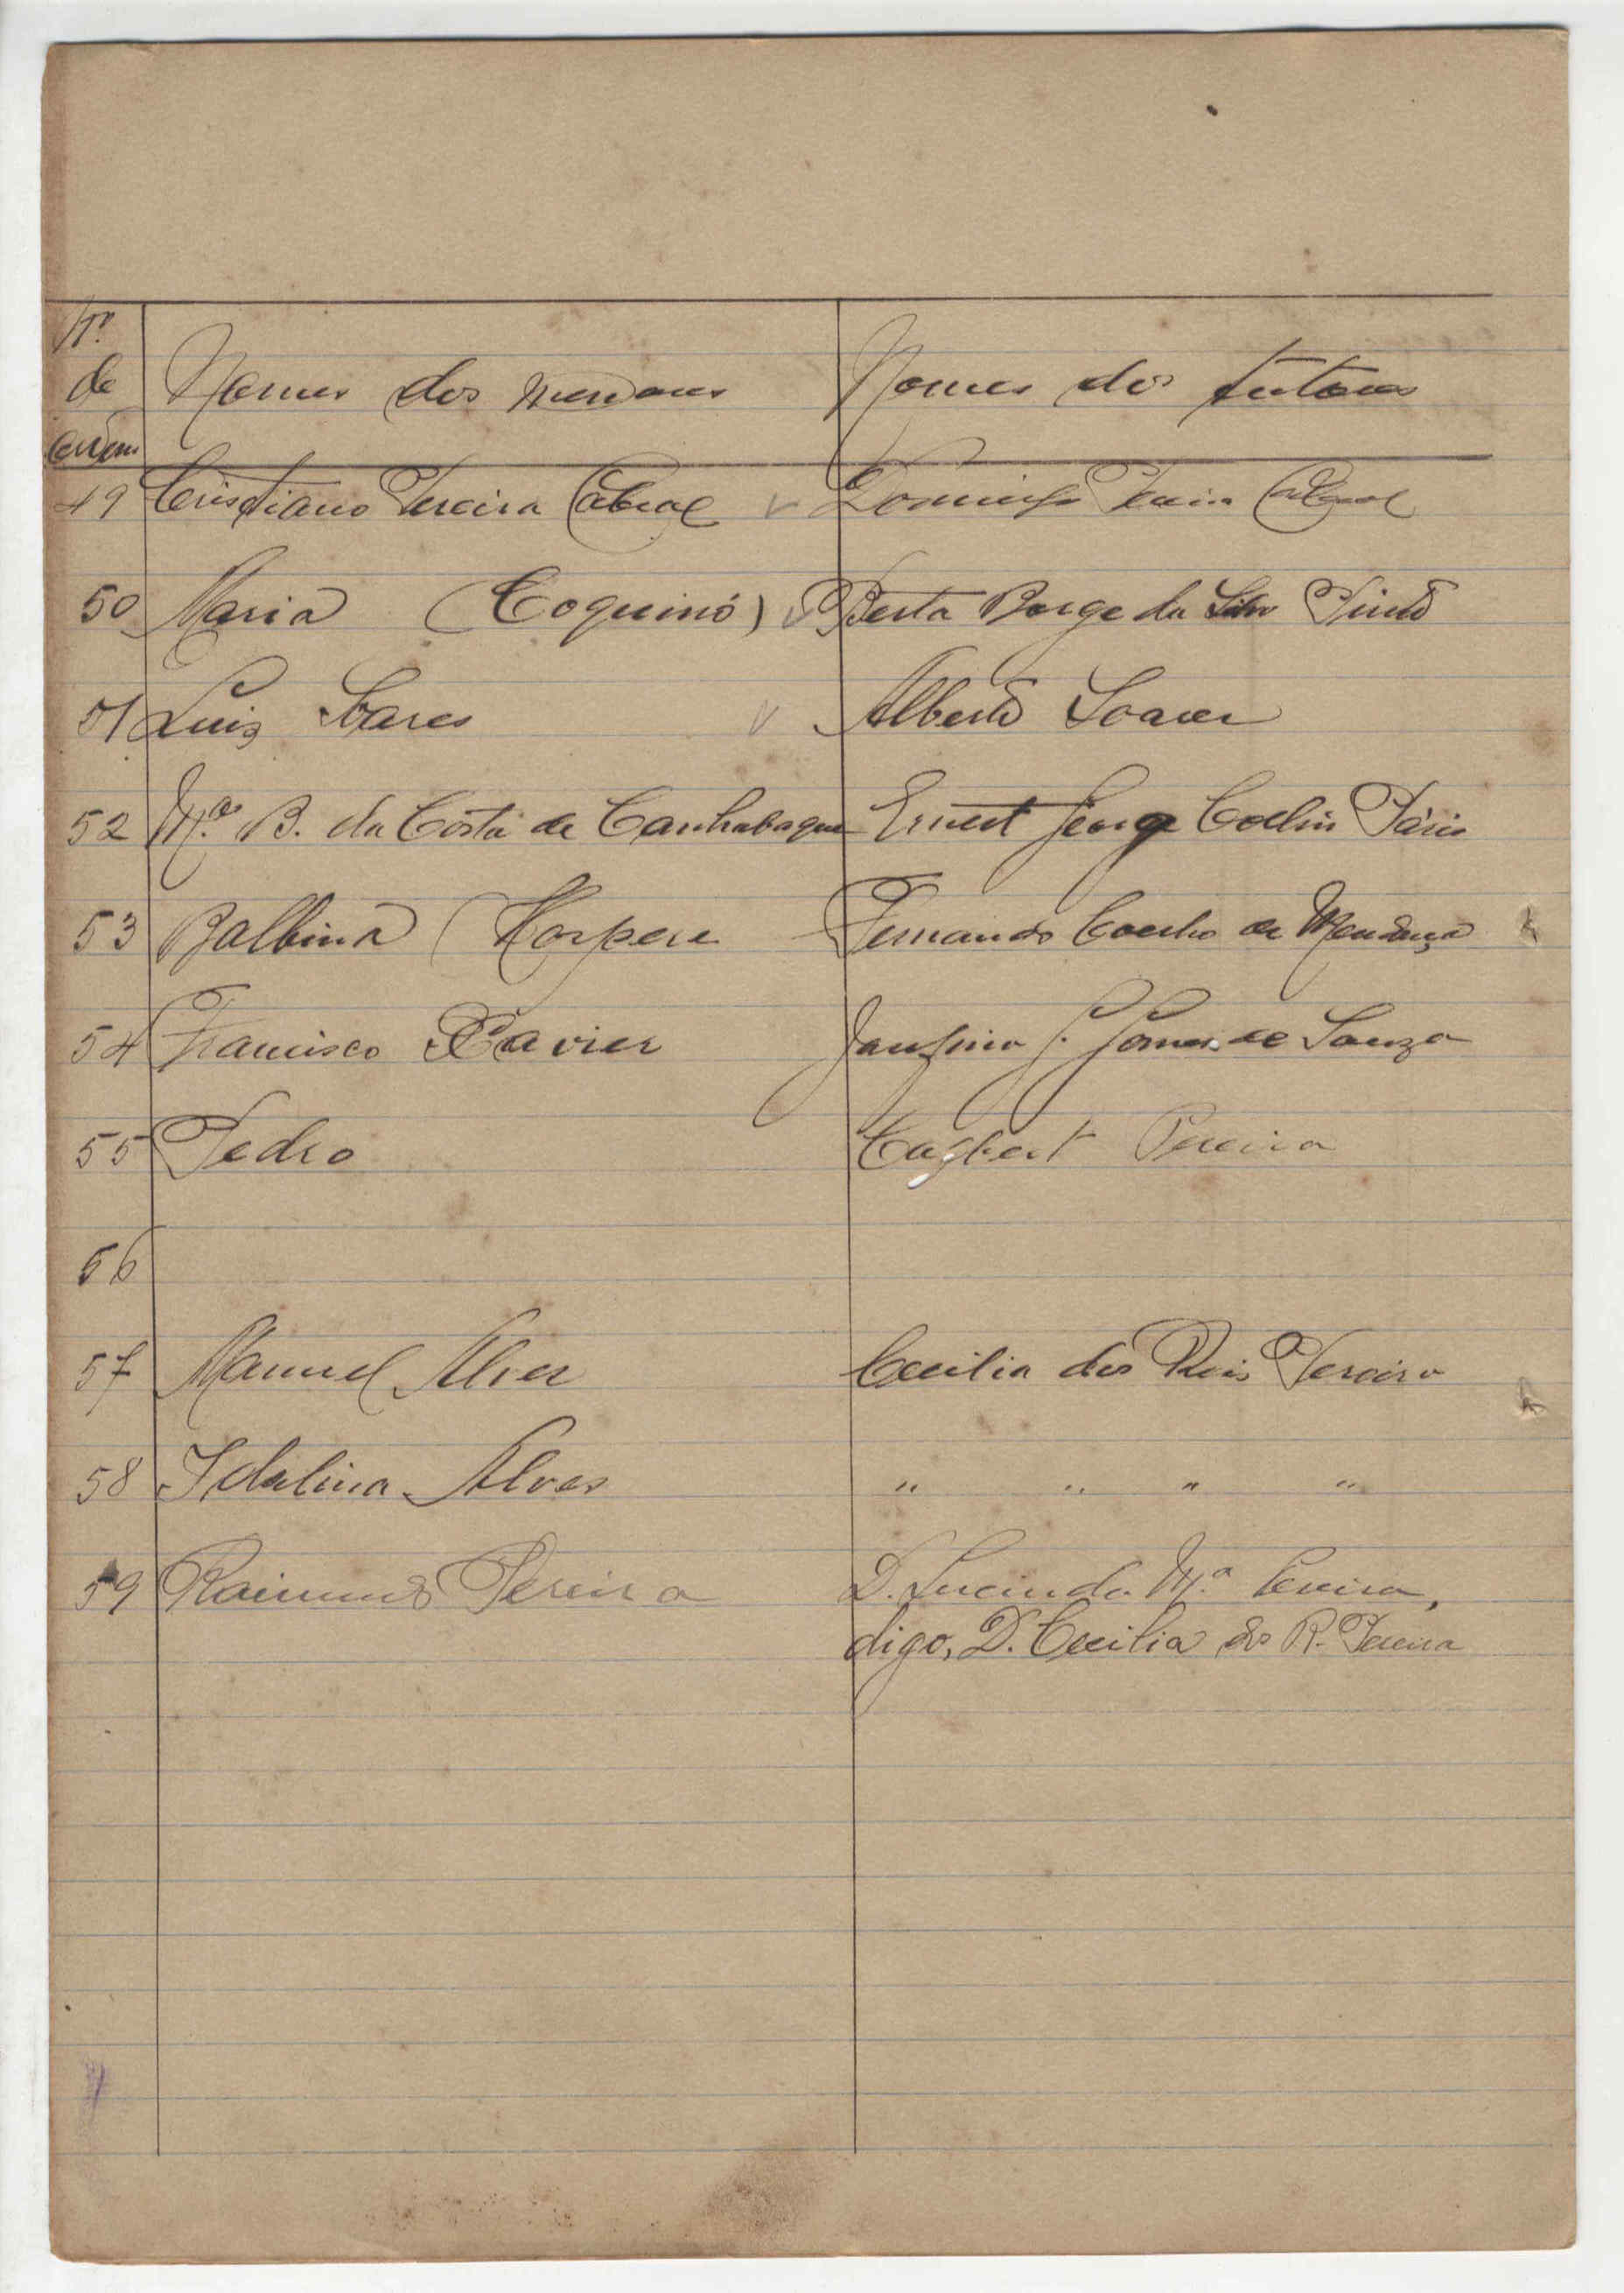 Nº
de
ordem
Nomes dos menores Nomes dos tutores
49 Cristiano Pereira Cabral v Domingos Pereira Cabral
50 Maria (Coquinó) v Berta Borge da Silva Pinto
51 Luiz Soares v Alberto Soares
52 M.ª B. da Costa de Canhabaque Ernest George Coelho Páris
53 Balbina Fernando Coelho de Mendonça
54 Francisco Xavier J. Gomes de Souza
55 Pedro Pereira
56
57 Manuel Alves Cecilia dos Reis Pereira
58 Idalina Alves " " " "
59 Raimundo Pereira D. Lucinda M.ª Pereira,
digo, D. Cecilia dos R. Pereira